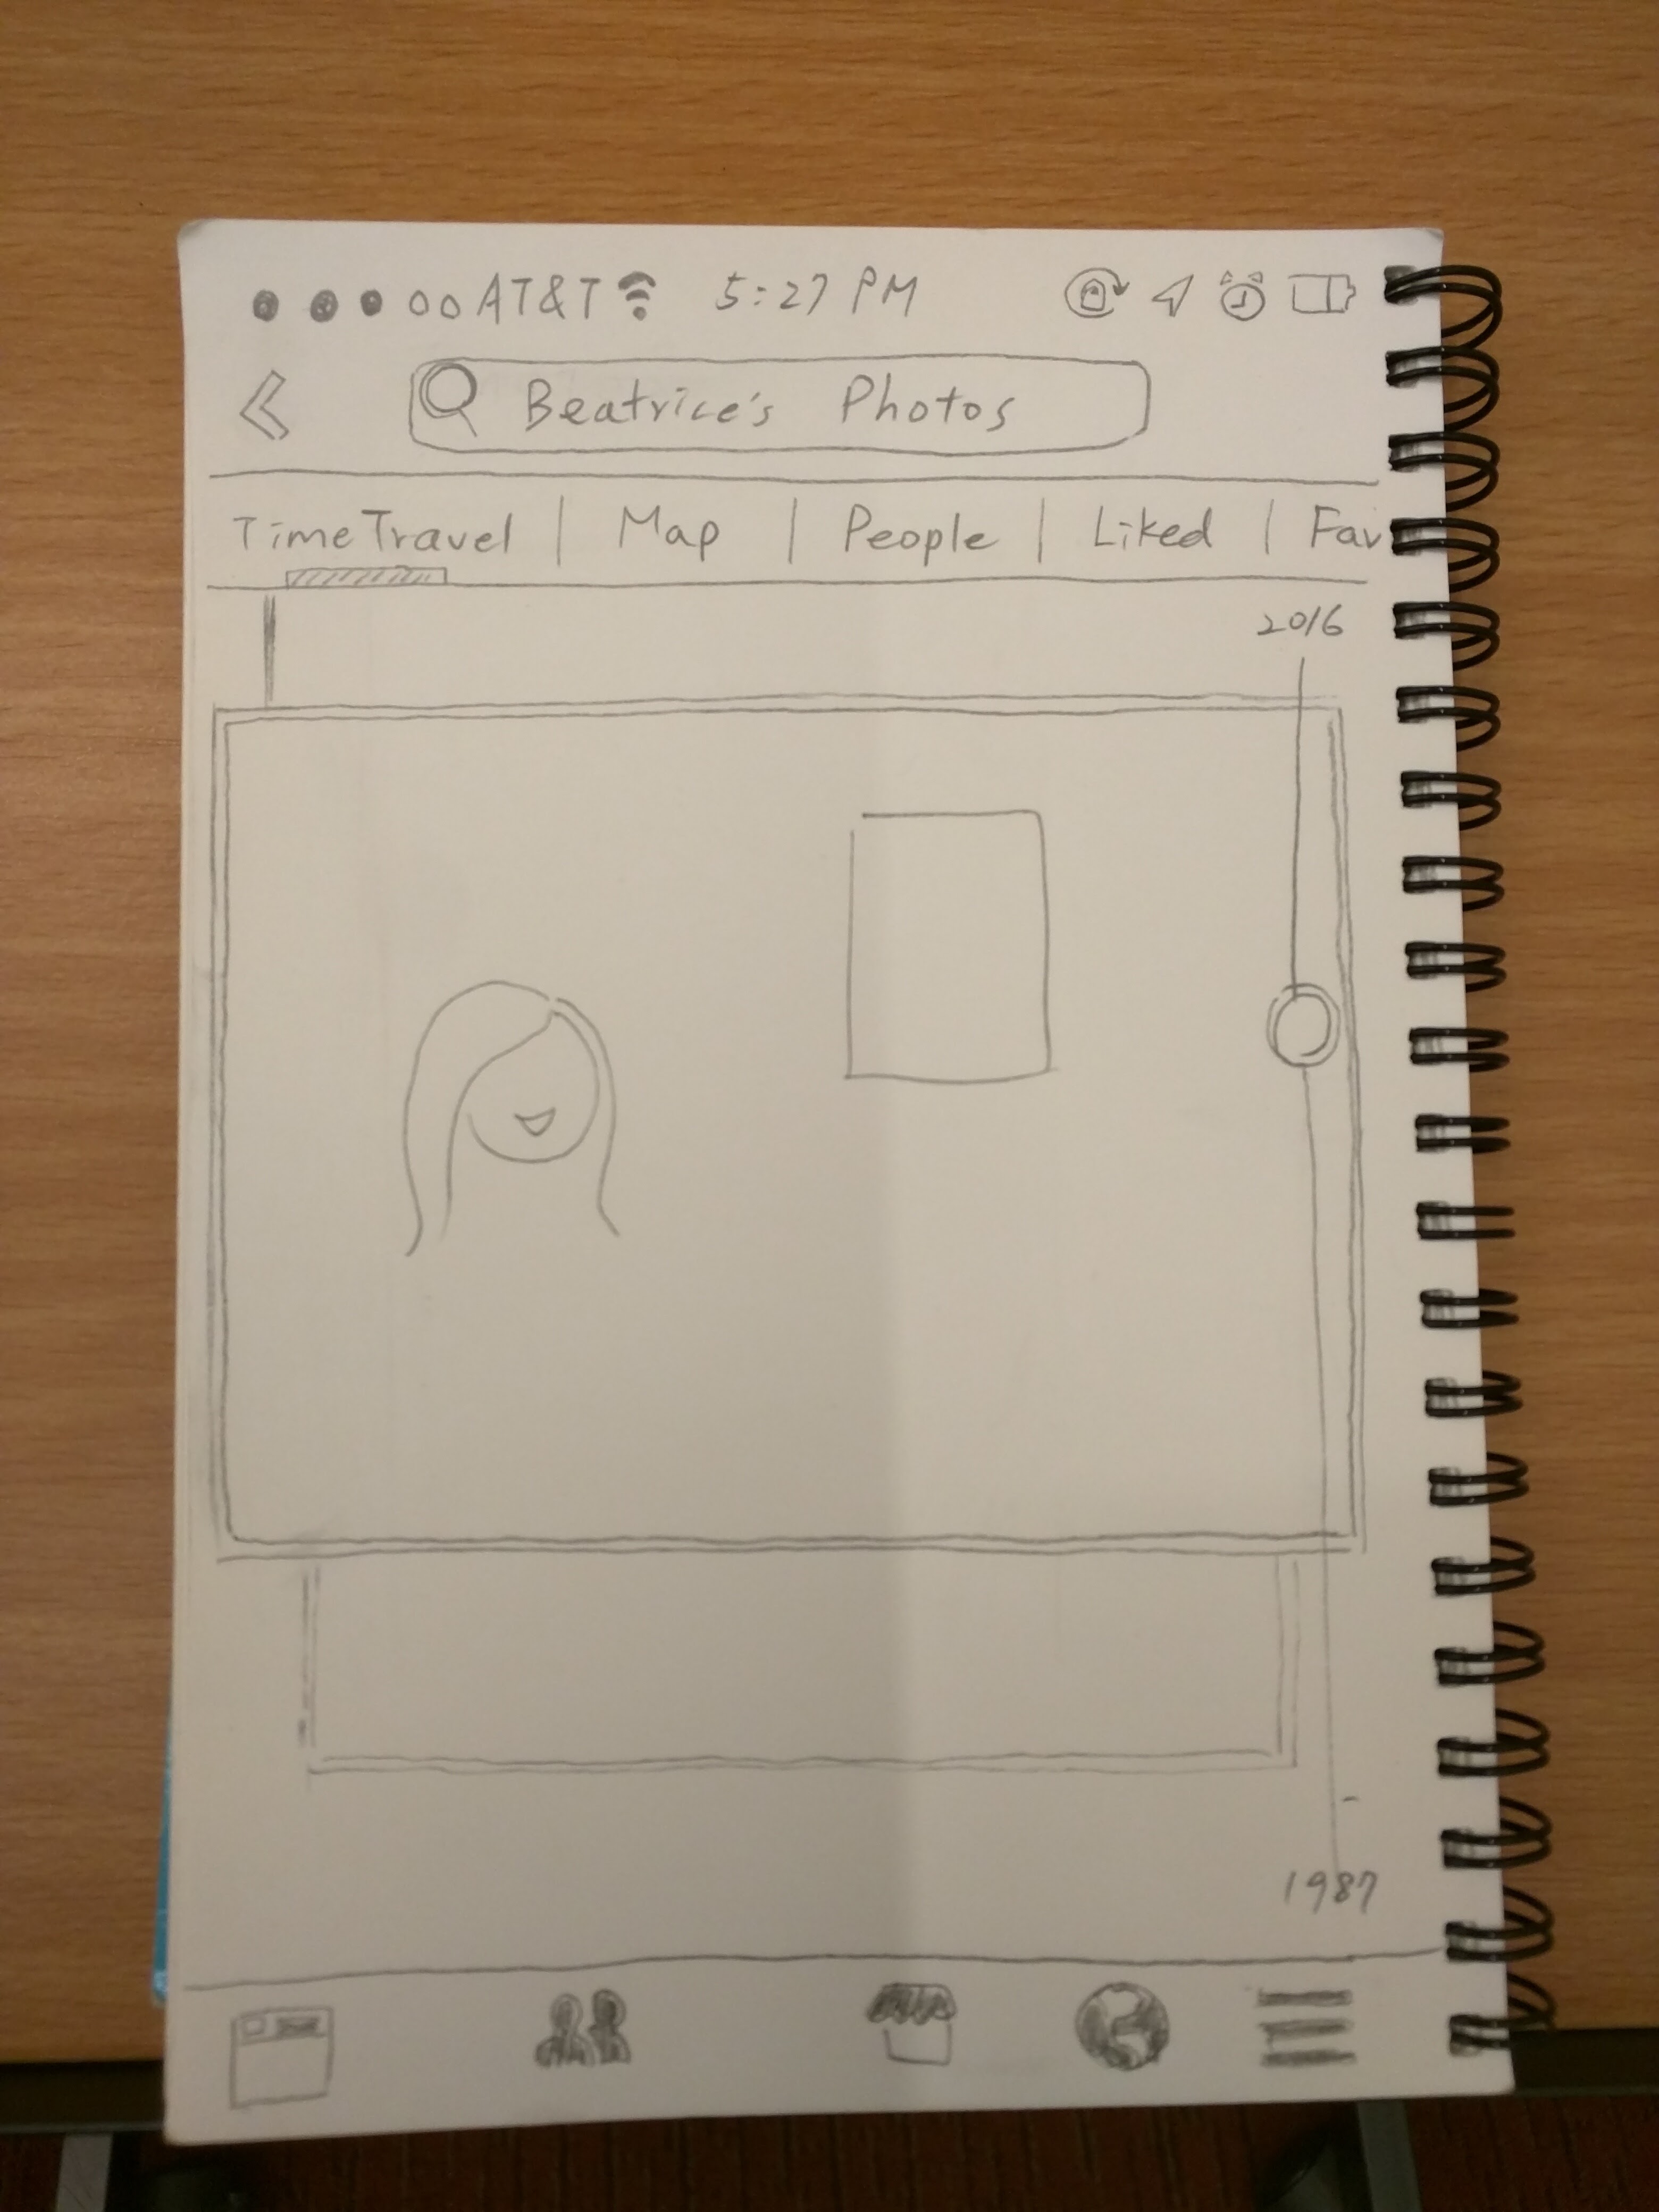 AT&T 5:27 PM
Beatrice's Photos
TimeTravel | Map | People | Liked | Fav
2016
1987